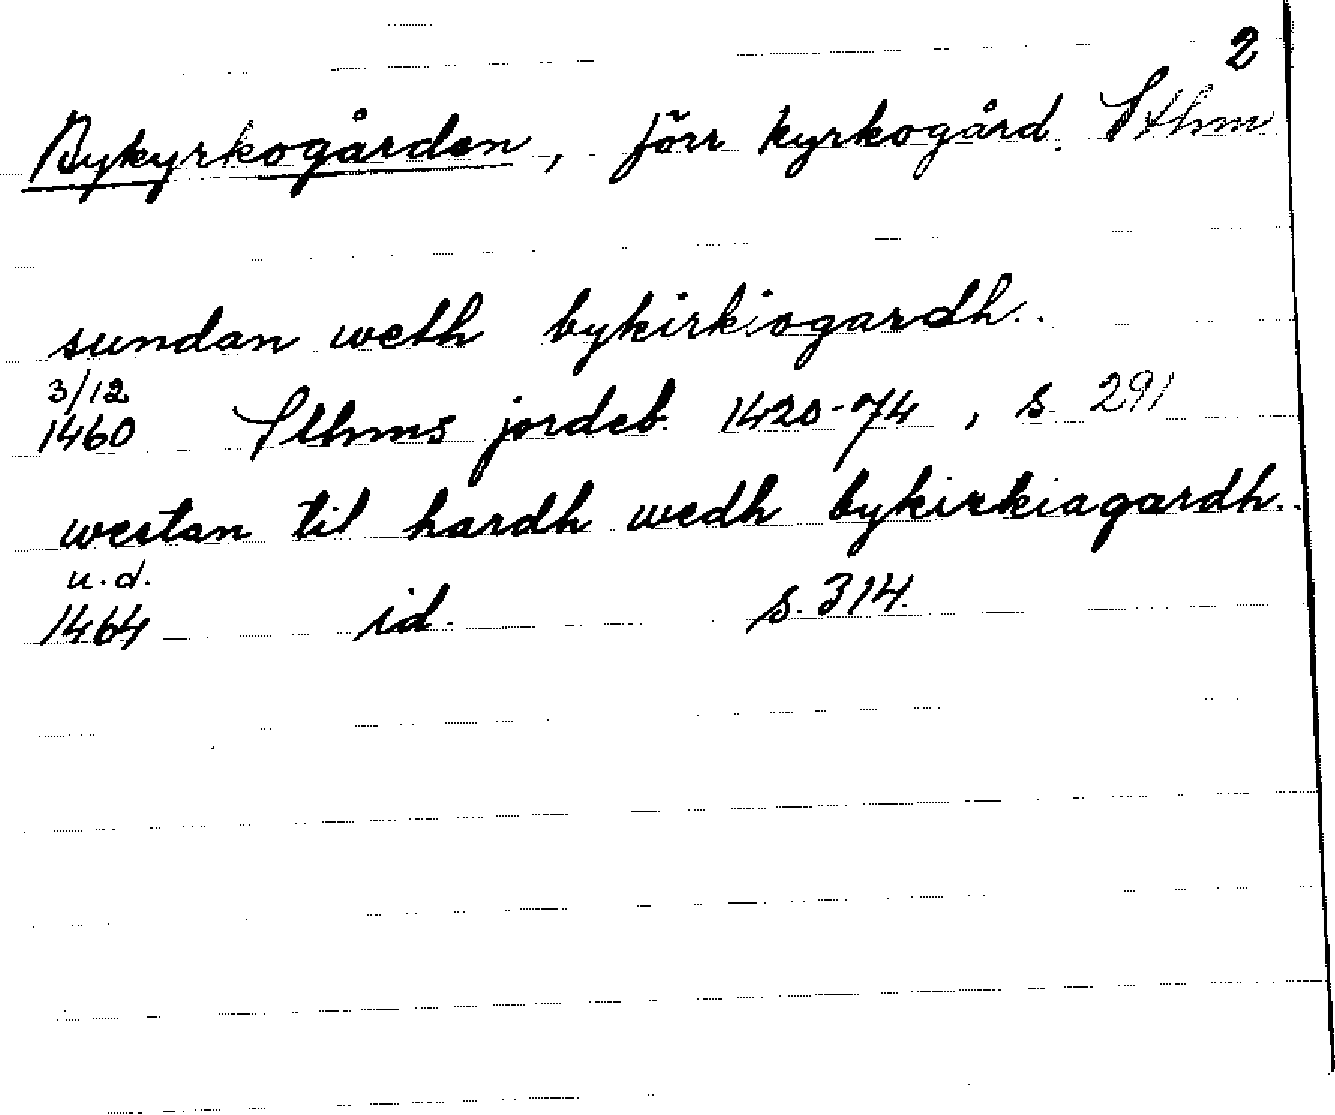 2
Bykyrkogården, förr kyrkogård. Sthm
sundan weth bykirkiogardh..
3/12
1460 Sthms jordeb. 1420-74, s. 291
westan til hardh wedh bykirkiagardh..
u.d.
1464 id. s. 314.